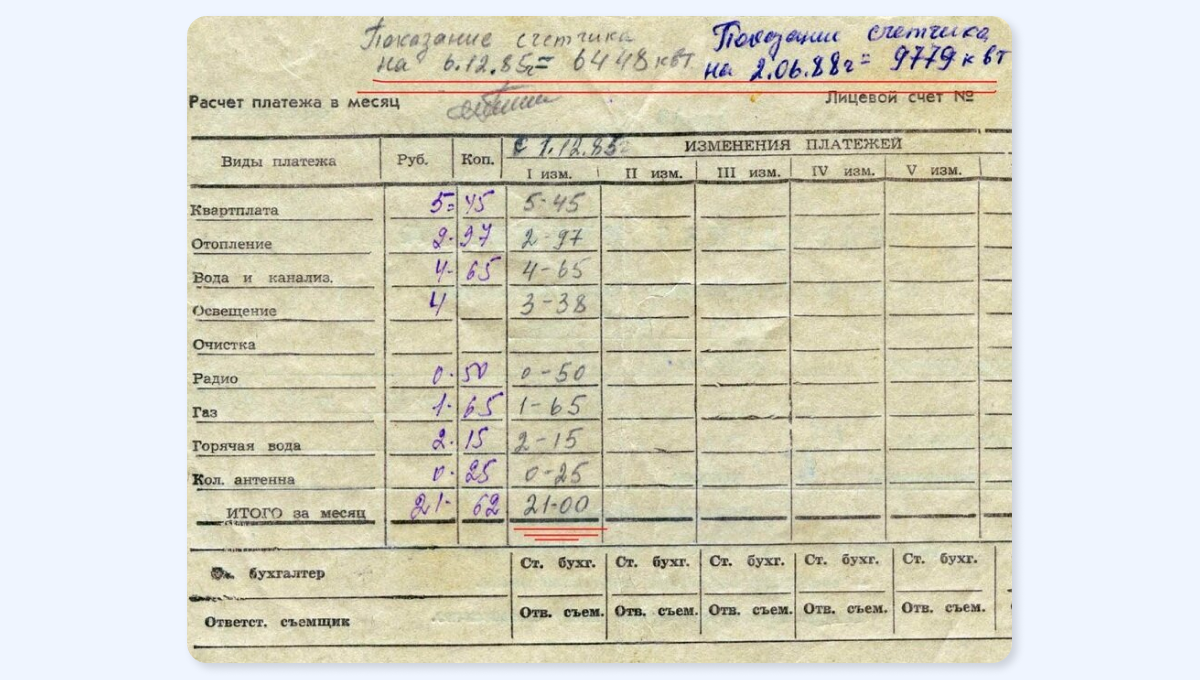 Показание счетчика
на 6.12.85г = 6448 квт
Показание счетчика
на 2.06.88г = 9779 квт
Расчет платежа в месяц
Лицевой счет №
Виды платежа Руб. Коп. с 1.12.85г ИЗМЕНЕНИЯ ПЛАТЕЖЕЙ
I изм. II изм. III изм. IV изм. V изм.
Квартплата 5= 45 5-45
Отопление 2. 97 2-97
Вода и канализ. 4- 65 4-65
Освещение 4 3-38
Очистка
Радио 0. 50 0-50
Газ 1. 65 1-65
Горячая вода 2. 15 2-15
Кол. антенна 0. 25 0-25
ИТОГО за месяц 21- 62 21-00
бухгалтер Ст. бухг. Ст. бухг. Ст. бухг. Ст. бухг. Ст. бухг.
Ответст. съемщик Отв. съем. Отв. съем. Отв. съем. Отв. съем. Отв. съем.